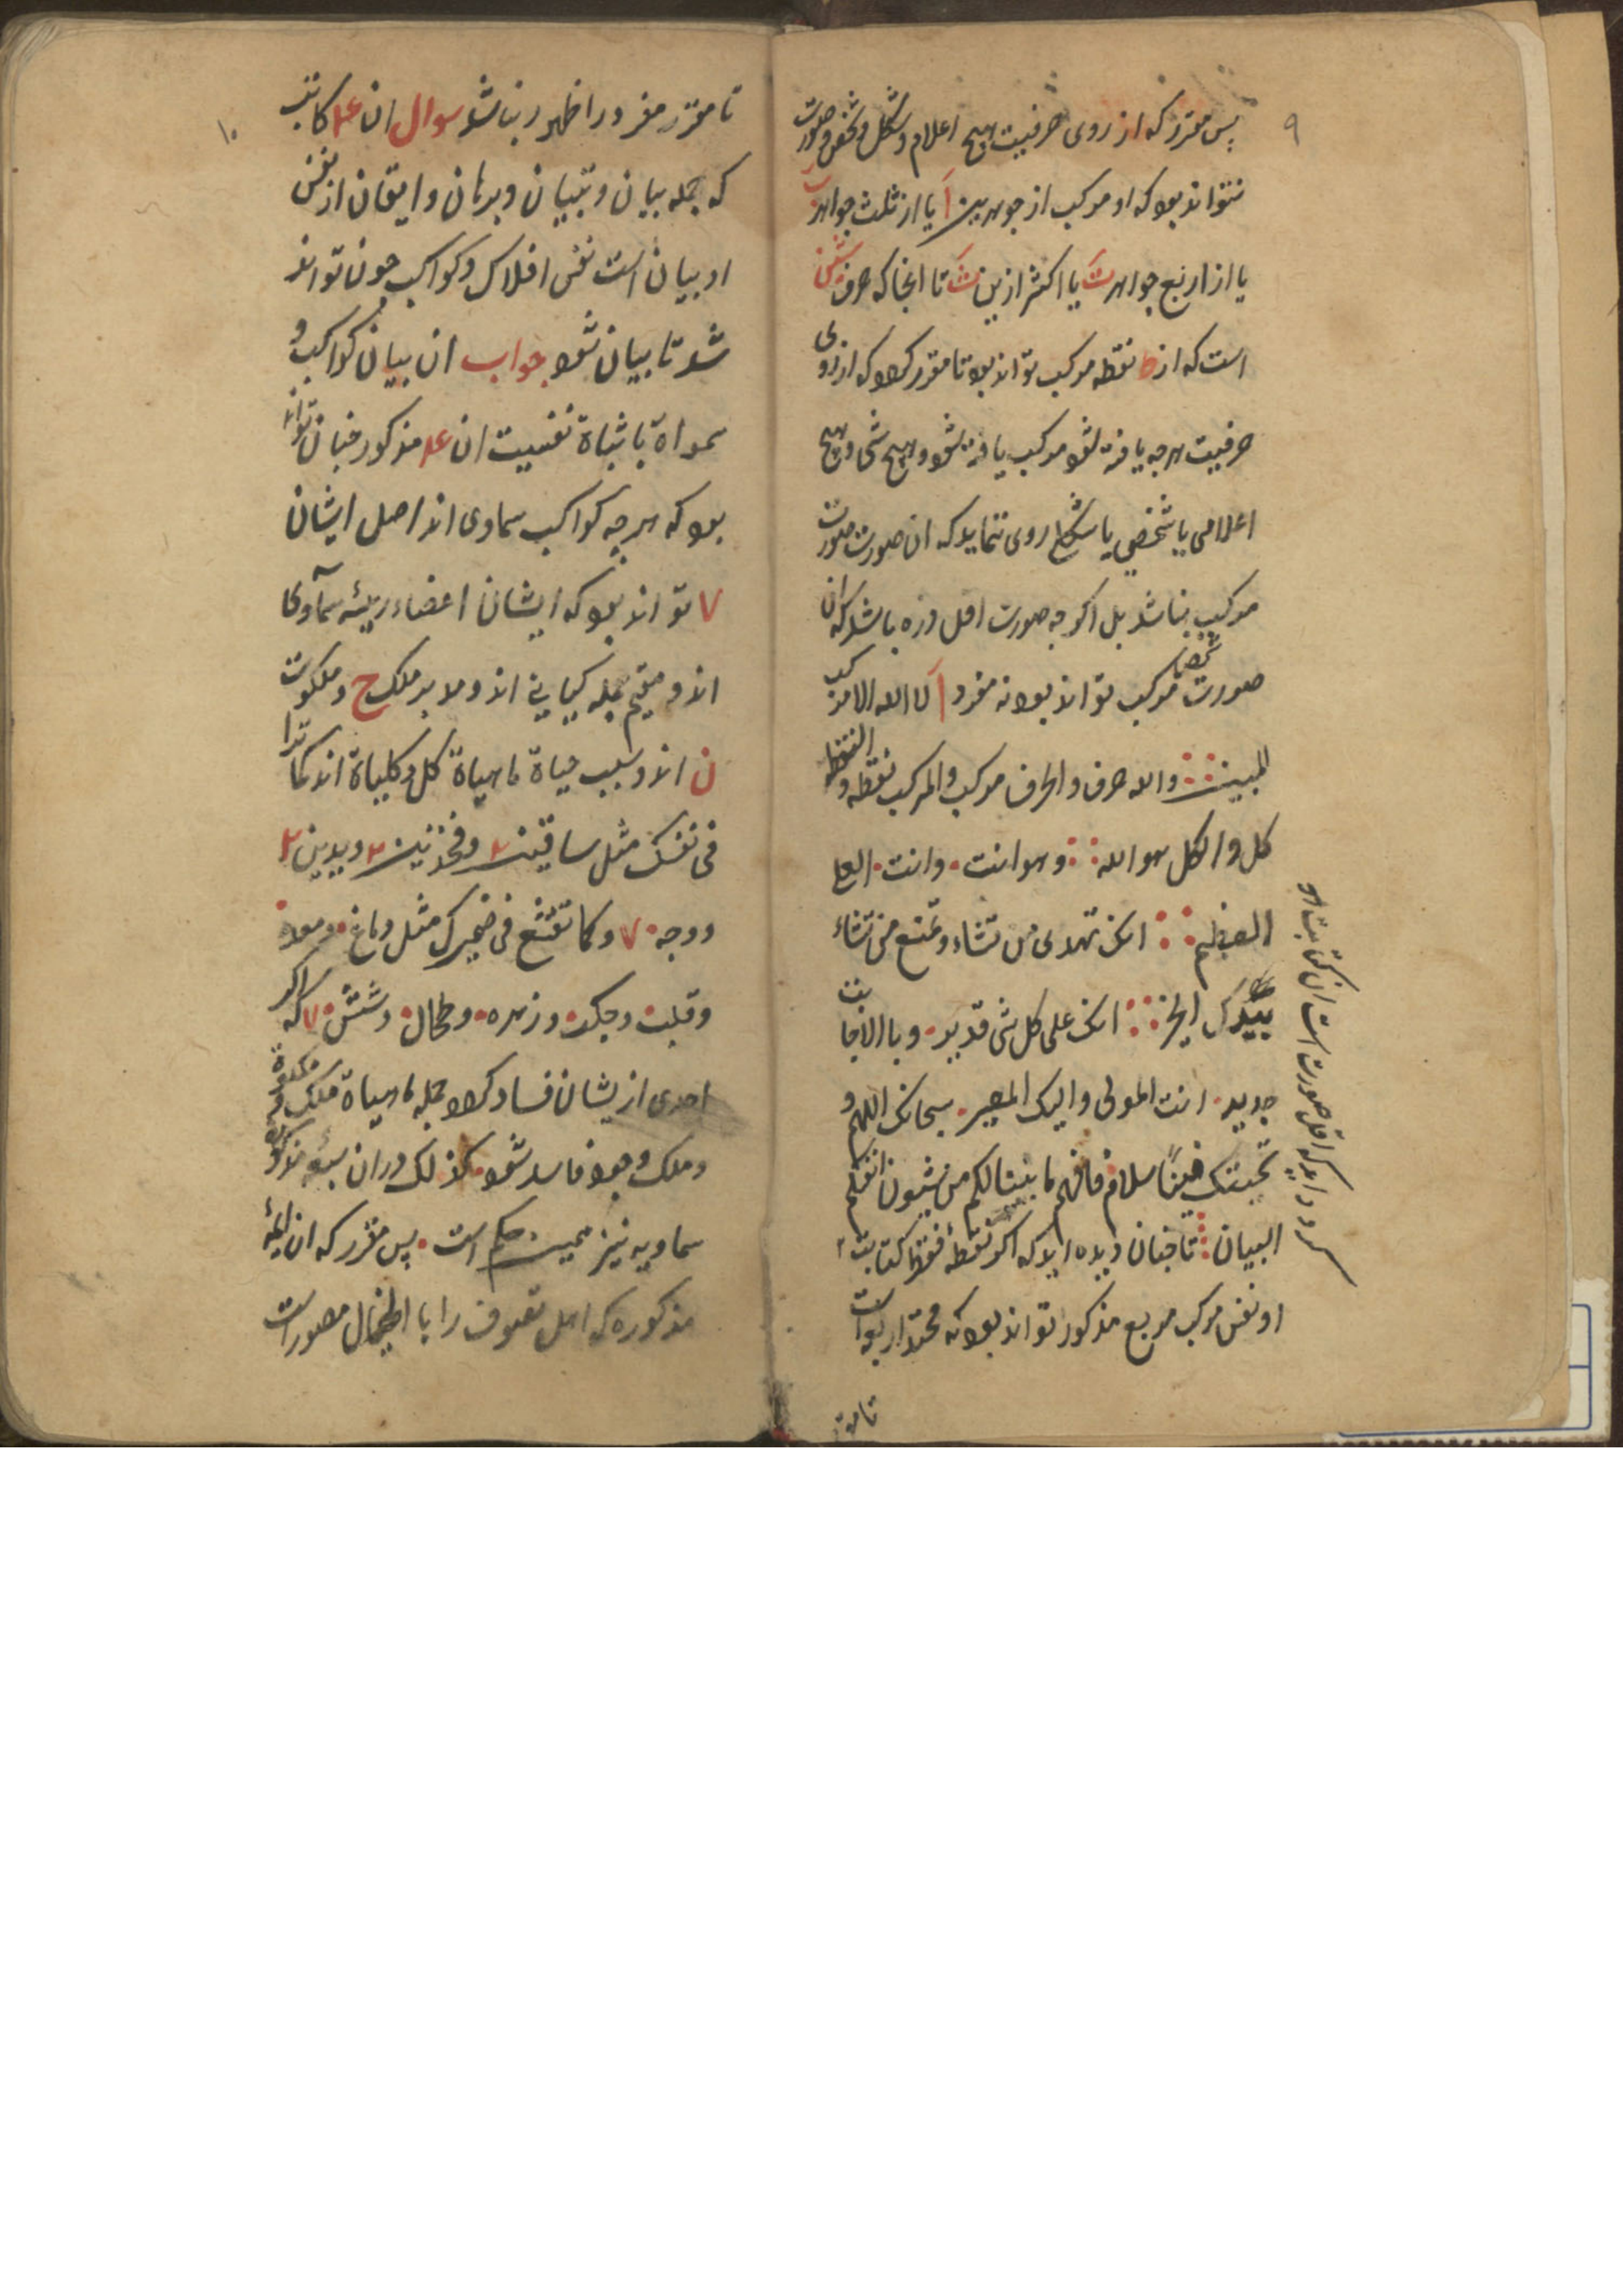 ۹
پس مقرر که از روی حرفیت هیچ اعلام و شکل و شخص و صورت
نتواند بود که او مرکب از جوهرین اَ یا از ثلث جواهر ب
یا از اربع جواهر تَ یا اکثر ازین ثَ تا انجا که حرف شین
است که از ط نقطه مرکب تواند بود تا مقرر کرد که از روی
حرفیت هرچه یافته شود مرکب یافته شود و هیچ شی و هیچ
اعلامی یا شخصی یا شکلی روی ننماید که ان صورت صورت
مرکب نباشد بل اکر چه صورت اقل ذره باشد که ان
صورت شخصیا مرکب تواند بود نه مفرد اَ لا الله الا مرکب
المبین والله حرف والحرف مرکب والمرکب نقطه والنقطه
کل والکل هو الله وهو انت وانت العلی
العظیم انک تهدی من تشاء وتمنع من تشاء
بیدک الخیر انک علی کل شی قدیر وبالاجابت
جدیر انت المولی والیک المصیر سبحانک اللهم و
تحیتک فینا سلام فافهم ما بینا لکم من شیون انقلم
البیان تا چنان دیده اید که اکر نقطه فقط کتابت
او نفس مرکب مربع مذکور تواند بود که محتد اربعه است
سرو دایره که اقل صورت است ان کتابت او
تا مقرر
۱۰
تا مقرر مفرد را ظهور نباشد سوال ان ع۴ کاتب
که جمله بیان و تبیان و برهان و ایقان از نفس
او بیان است نفس افلاک و کواکب چون تواند
شد تا بیان شود جواب ان بیان کواکب و
سمواة باثباة نفسیت ان ع۴ مذکور چنان تواند
بود که هرچه کواکب سماوی اند اصل ایشان
۷ تواند بود که ایشان اعضاء رییسه سماوی
اند و مقیم جمله کیانی اند و مدبر ملک ح و ملکوت
ن اند و سبب حیاة ماهیاة کل و کلیاة اند کما ترا
فی نفسک مثل ساقین ۲ وفخذین ۲ ویدین ۲
ووجه ۷ وکما تقنع فی ضمیرک مثل دماغ ومعده
وقلب وجکر وزهره وطحال وشش ۷ که اکر
احدی ازیشان فساد کرد جمله ماهیاة ملک و ملکوة
و ملک وجود فاسد شود کذلک دران سبعه مذکوره
سماویه نیز همین حکم است پس مقرر که ان ایمۀ
مذکوره که اهل تصوف را با اطیحال مصور است